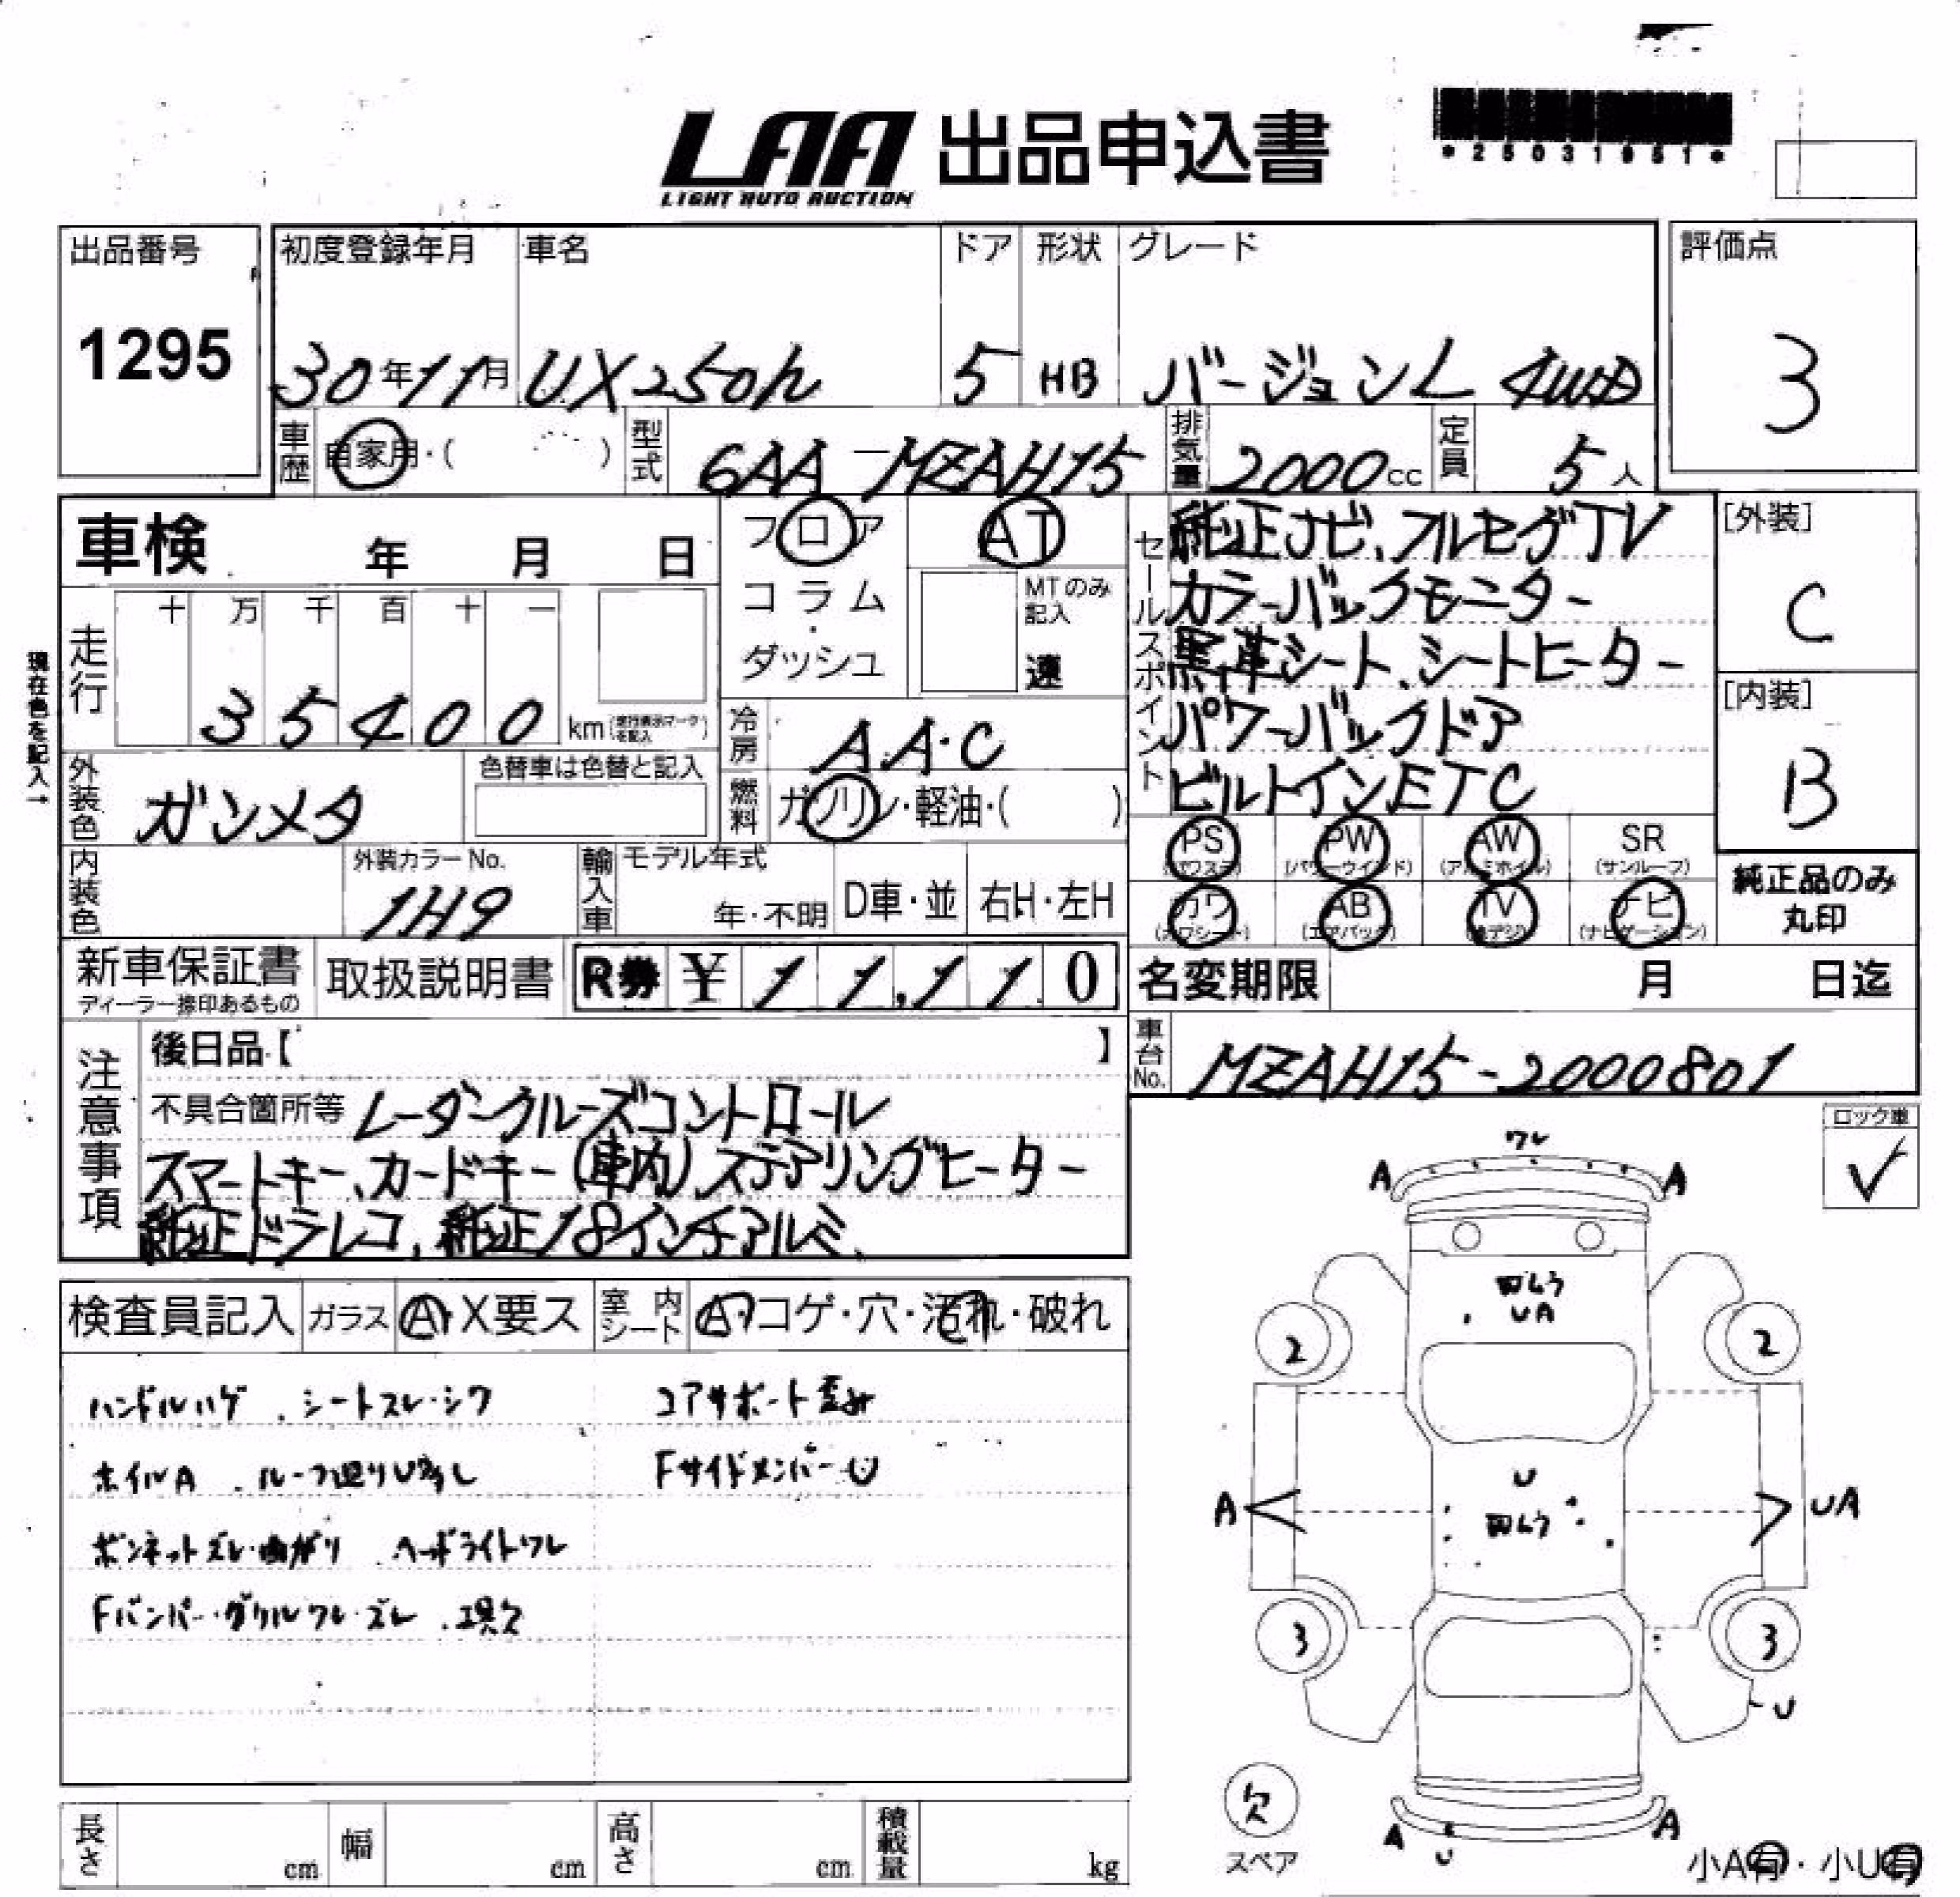 LAA 出品申込書
LIGHT AUTO AUCTION
*25031951*
出品番号
1295
初度登録年月
30年11月
車名
UX250h
ドア
5
形状
HB
グレード
バージョンL 4WD
評価点
3
車歴
自家用・( )
型式
6AA-MZAH15
排気量
2000cc
定員
5人
車検 年 月 日
フロア
コラム
・
ダッシュ
AT
MTのみ
記入
速
セールスポイント
純正ナビ、フルセグTV
カラーバックモニター
黒革シート、シートヒーター
パワーバックドア
ビルトインETC
[外装]
C
[内装]
B
現在色を記入→
走行
十 万 千 百 十 一
35400 km(走行表示マークを記入)
冷房
AA・C
外装色
ガンメタ
色替車は色替と記入
燃料
ガソリン・軽油・( )
内装色
外装カラーNo.
1H9
輸入車
モデル年式
年・不明
D車・並
右H・左H
PS (パワステ)
PW (パワーウインド)
AW (アルミホイル)
SR (サンルーフ)
カワ (カワシート)
AB (エアバック)
TV (地デジ)
ナビ (ナビゲーション)
純正品のみ
丸印
新車保証書
ディーラー捺印あるもの
取扱説明書
R券 ¥ 11,110
名変期限 月 日迄
車台No.
MZAH15-2000801
注意事項
後日品【 】
不具合箇所等 レーダークルーズコントロール
スマートキー、カードキー(車内)、ステアリングヒーター
純正ドラレコ、純正18インチアルミ、
ロック車
✓
検査員記入
ガラス
A・X要ス
室内シート
A・コゲ・穴・汚れ・破れ
ハンドルハゲ . シートスレ・シワ
コアサポート歪み
ホイルA . ルーフ廻りU多し
FサイドメンバーU
ボンネットズレ・曲がり . ヘッドライトワレ
Fバンパー・グリルワレ・ズレ . 工具欠
ワレ
A A
凹ムラ
UA
2 2
U
A UA
凹ムラ
3 3
U
欠
スペア
A A
U
小A有・小U有
長さ cm
幅 cm
高さ cm
積載量 kg